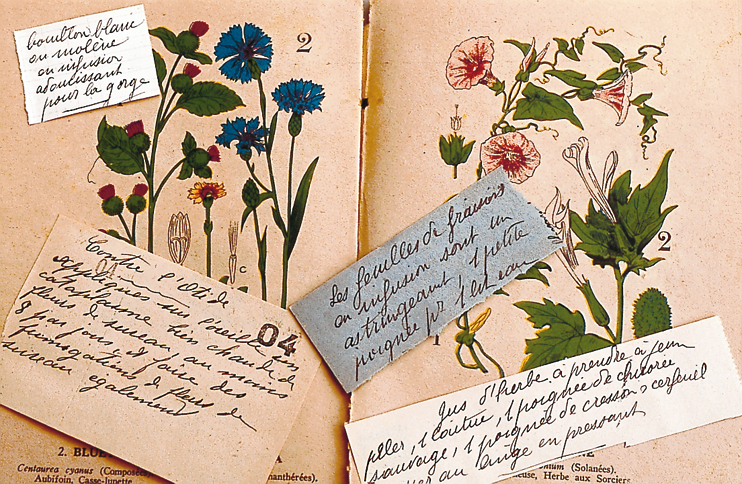 bouillon blanc
ou molène
en infusion
adoucissant
pour la gorge
2
Contre l'otite
appliquer sur oreille en
cataplasme bien chaud de
fleurs de sureau, au moins
8 par jour, et faire des
fumigations de fleurs de
sureau également
04
C
Les feuilles de fraisiers
en infusion sont un
astringeant, 1 petite
poignée pr 1 l. et eau
2
1
Jus d'herbe à prendre à jeun
piler, 1 laitue, 1 poignée de chicorée
sauvage, 1 poignée de cresson, cerfeuil
au linge en pressant
2. BLUE
Centaurea cyanus (Composées
Aubifoin, Casse-lunette
nthérées).
(Solanées).
Herbe aux Sorciers